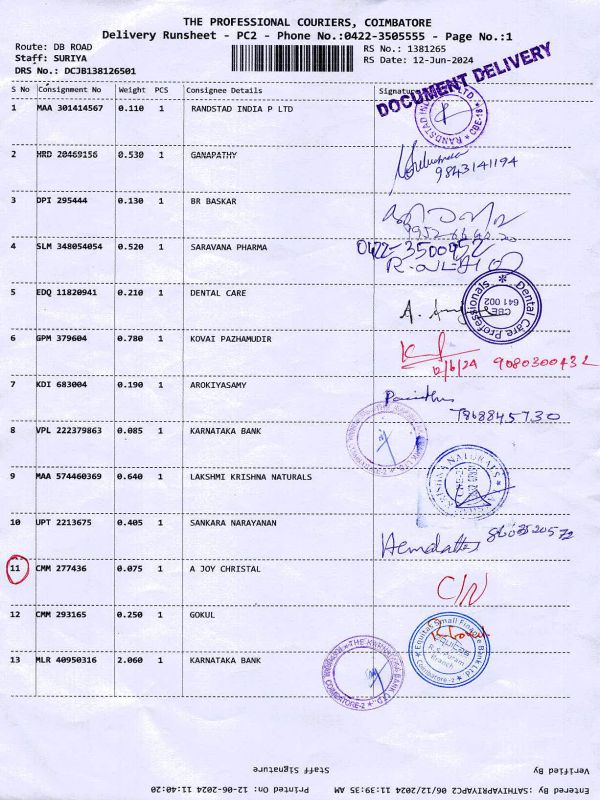 THE PROFESSIONAL COURIERS, COIMBATORE
Delivery Runsheet - PC2 - Phone No.:0422-3505555 - Page No.:1
Route: DB ROAD RS No.: 1381265
Staff: SURIYA RS Date: 12-Jun-2024
DRS No.: DCJB138126501
DOCUMENT DELIVERY
S No Consignment No Weight PCS Consignee Details Signature
1 MAA 301414567 0.110 1 RANDSTAD INDIA P LTD
2 HRD 20469156 0.530 1 GANAPATHY 9843141194
3 DPI 295444 0.130 1 BR BASKAR
4 SLM 348054054 0.520 1 SARAVANA PHARMA
5 EDQ 11820941 0.210 1 DENTAL CARE Dental Care Professionals CBE 641 002
6 GPM 379604 0.780 1 KOVAI PAZHAMUDIR 12/6/24 9080300432
7 KDI 683004 0.190 1 AROKIYASAMY 7868845730
8 VPL 222379863 0.085 1 KARNATAKA BANK
9 MAA 574460369 0.640 1 LAKSHMI KRISHNA NATURALS
10 UPT 2213675 0.405 1 SANKARA NARAYANAN Hemalatha
11 CMM 277436 0.075 1 A JOY CHRISTAL C/N
12 CMM 293165 0.250 1 GOKUL Equitas Small Finance Bank Ltd R.S. Puram Branch Coimbatore-2
13 MLR 40950316 2.060 1 KARNATAKA BANK THE KARNATAKA BANK LTD COIMBATORE-2
Verified By Staff Signature
Entered By :SATHIYAPRIYAPC2 06/12/2024 11:39:35 AM Printed On: 12-06-2024 11:40:20